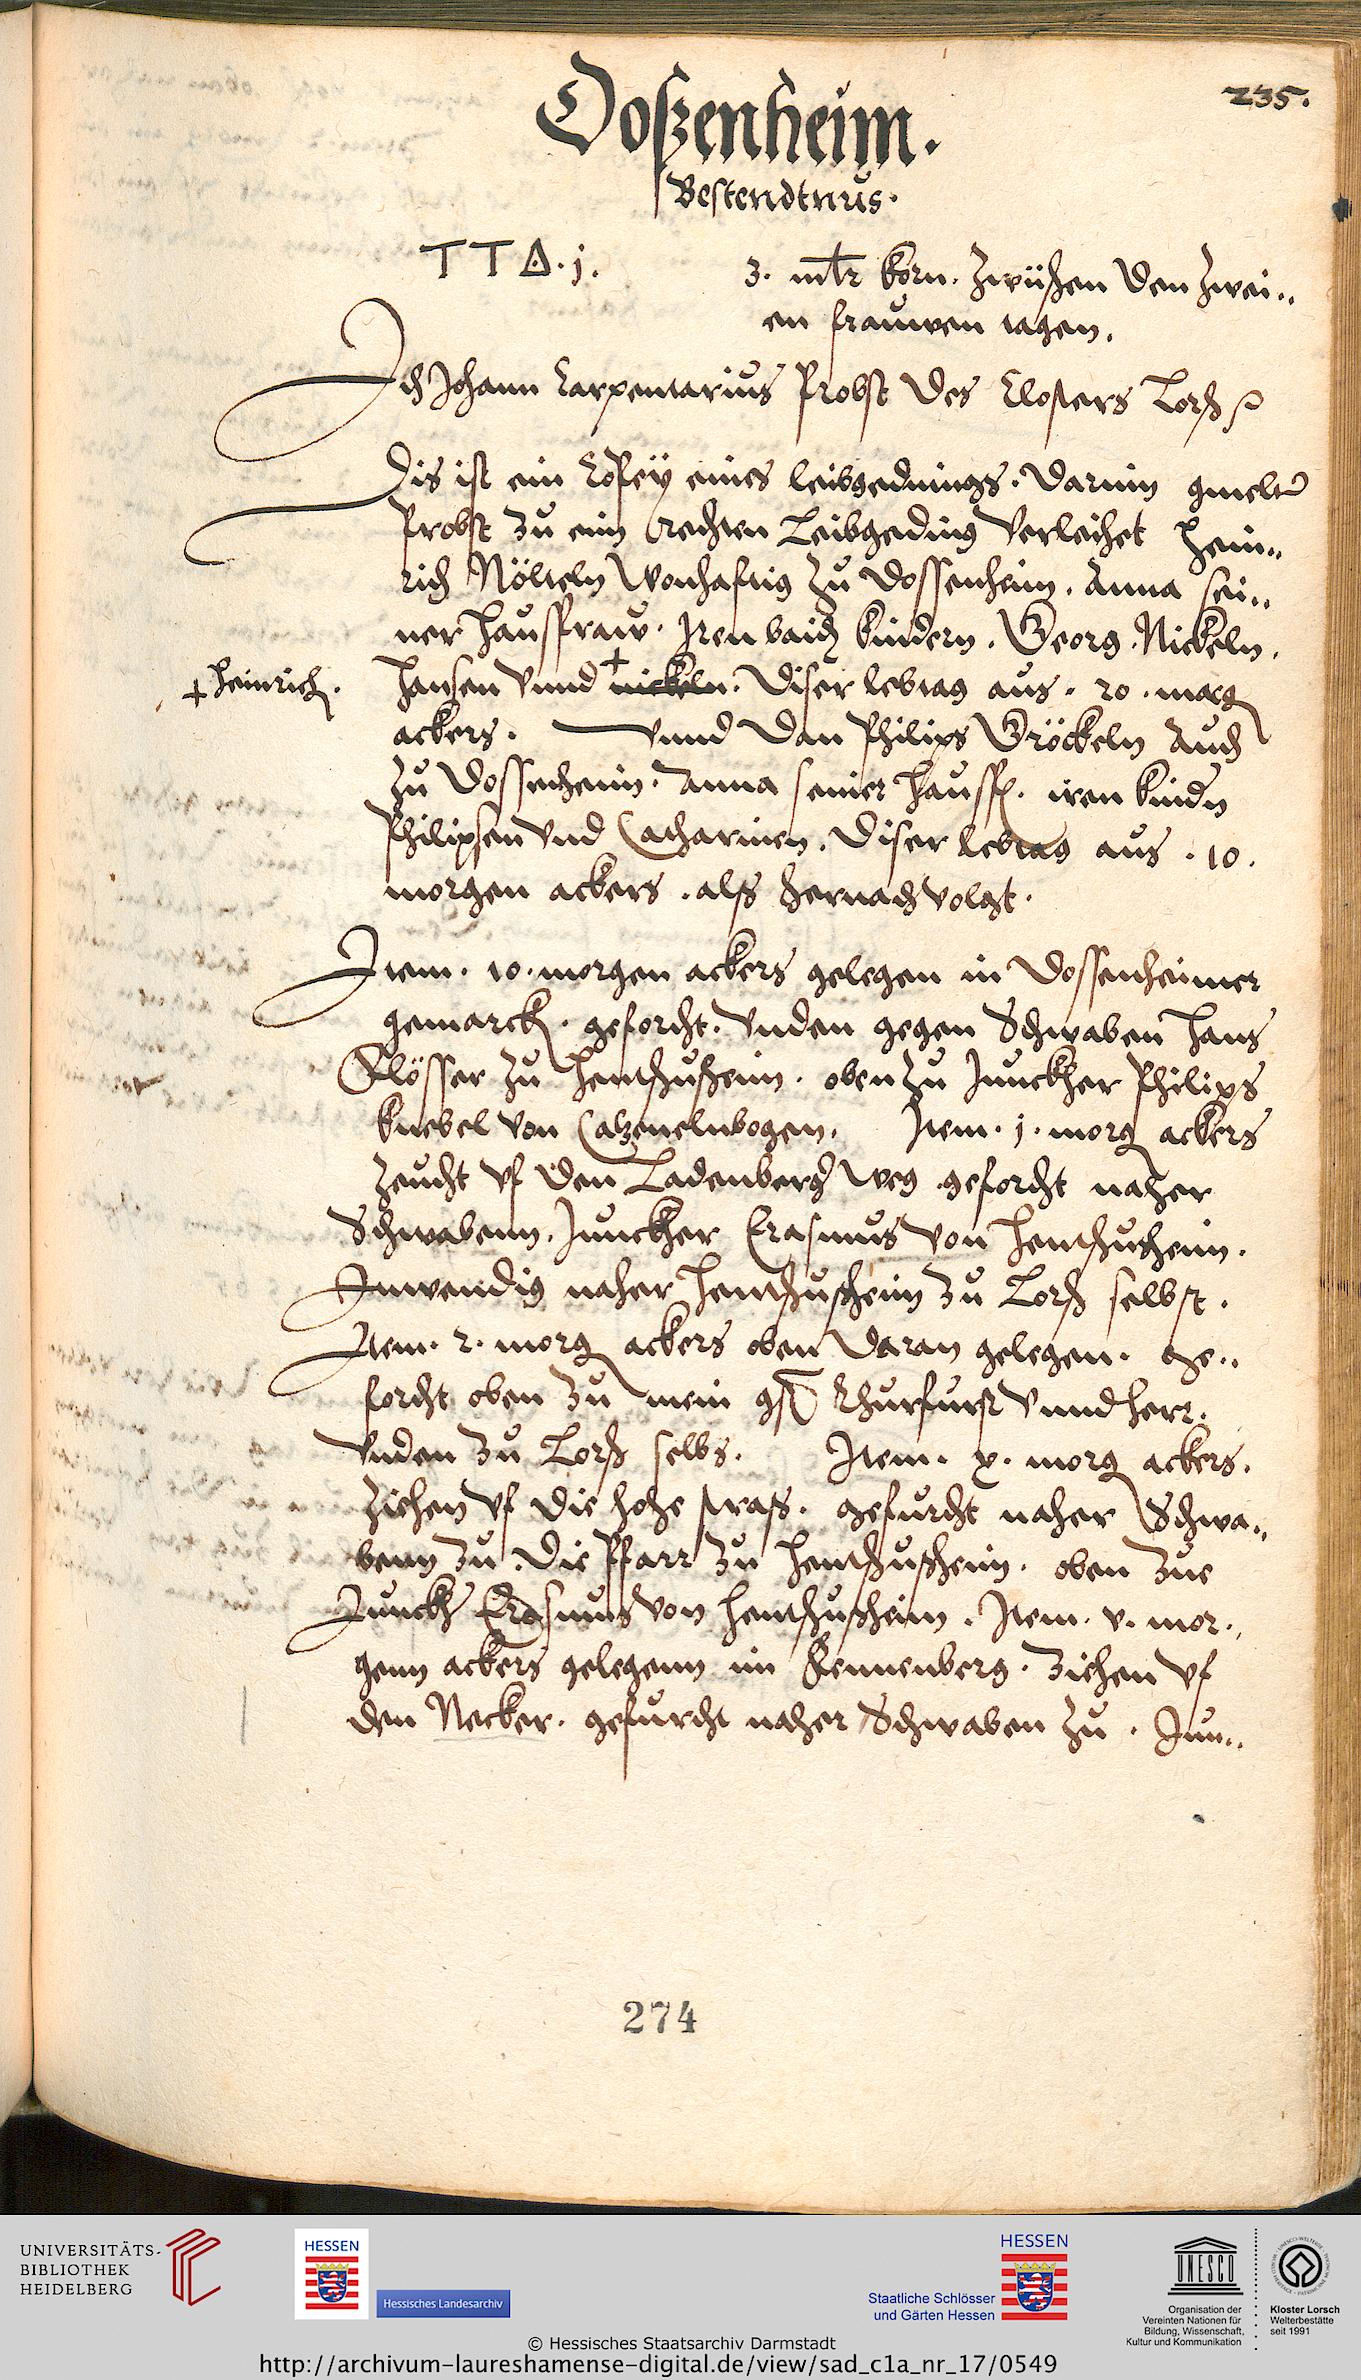 235.
Doszenheim.
Bestendtnus.
TT∆.j.
3. mltr korn. zwüschen den zwei..
en frauwen tagen.
Ich Johann Carpentarius Probst des Closters Lorsch
Dis ist ein Copey eines leibgedings. Darinn gmelter
Probst zu eim rechten Leibgeding verleihet Hein..
rich Nölteln wonhafftig zu Dossenheim. Anna sei..
ner hausfraw. Iren baid kindern. Georg. Nickeln.
Hansen vnnd + nickeln. Diser lebtag aus. 20. morg
+ Heinrich.
ackers. vnnd dan Philips Gröckeln Auch
zu Dossenheim. Anna seiner hausf. iren kindn
Philipsen vnd Catharinen. Diser lebtag aus. 10.
morgen ackers. alss hernach volgt.
Item. 10. morgen ackers gelegen in Dossenheimer
gemarck. geforcht. vnden gegen Schwaben Hans
Flösser zu Hentschusheim. oben zu Junckher Philips
knebel von Catzenelnbogen. Item. j. morg ackers
zeucht vf den Ladenberg weg geforcht naher
Schwabenn. Junckher Erasmus von Hentschusheim.
Inwendig naher Hentschusheim zu Lorsch selbst.
Item. 2. morg ackers oben daran gelegen. ge..
forcht oben zu mein gst Churfurst vnnd herr.
vnden zu Lorsch selbs. Item. x. morg ackers.
ziehen vf die hohe strass. gefurcht naher Schwa..
benn zu die Pfarr zu Hentschusheim. oben zue
Junckh Erasmus von Hentschusheim. Item. v. mor..
genn ackers gelegenn im ziehen vf
den Necker. gefurcht naher Schwaben zu. Jun..
274
UNIVERSITÄTS-
BIBLIOTHEK
HEIDELBERG
HESSEN
Hessisches Landesarchiv
HESSEN
Staatliche Schlösser
und Gärten Hessen
UNESCO
Organisation der
Vereinten Nationen für
Bildung, Wissenschaft,
Kultur und Kommunikation
Kloster Lorsch
Welterbestätte
seit 1991
© Hessisches Staatsarchiv Darmstadt
http://archivum-laureshamense-digital.de/view/sad_c1a_nr_17/0549